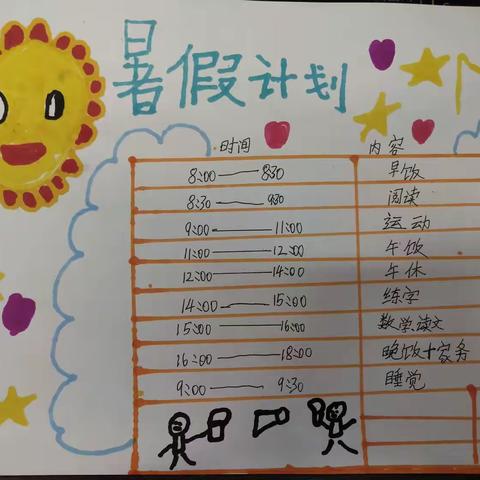 暑假计划
时间 内容
8:00——8:30 早饭
8:30——9:30 阅读
9:00——11:00 运动
11:00——12:00 午饭
12:00——14:00 午休
14:00——15:00 练字
15:00——16:00 数学读文
16:00——18:00 晚饭+家务
9:00——9:30 睡觉